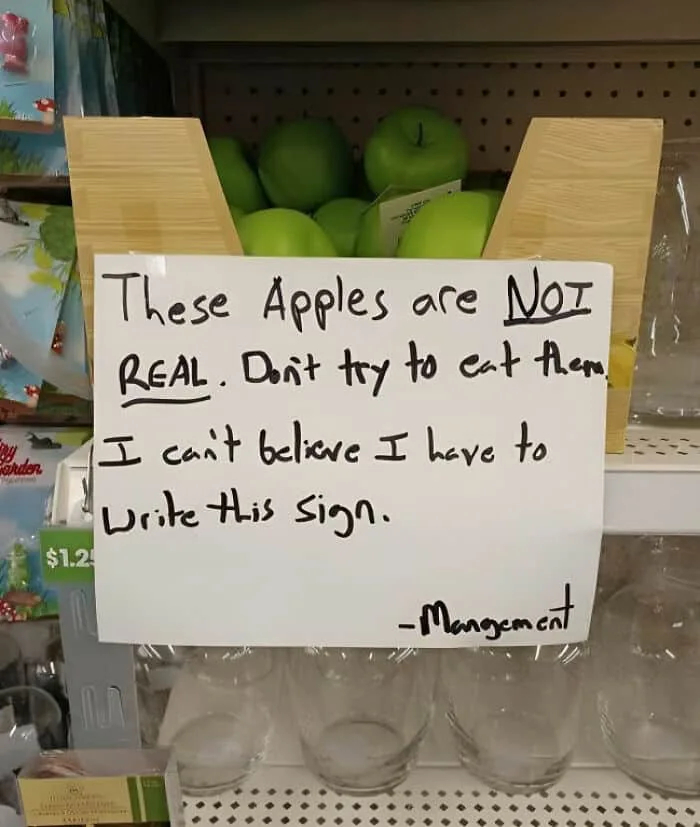 These Apples are NOT
REAL. Don't try to eat them.
I can't believe I have to
write this sign.
-Mangement
$1.25
Garden